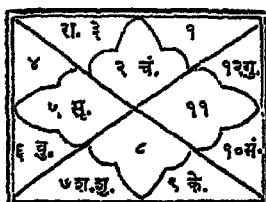 रा. ३ १
४ २ चं. १२गु.
५. सू. ११
६ बु. ८ १०मं.
७ श.शु. ९ के.